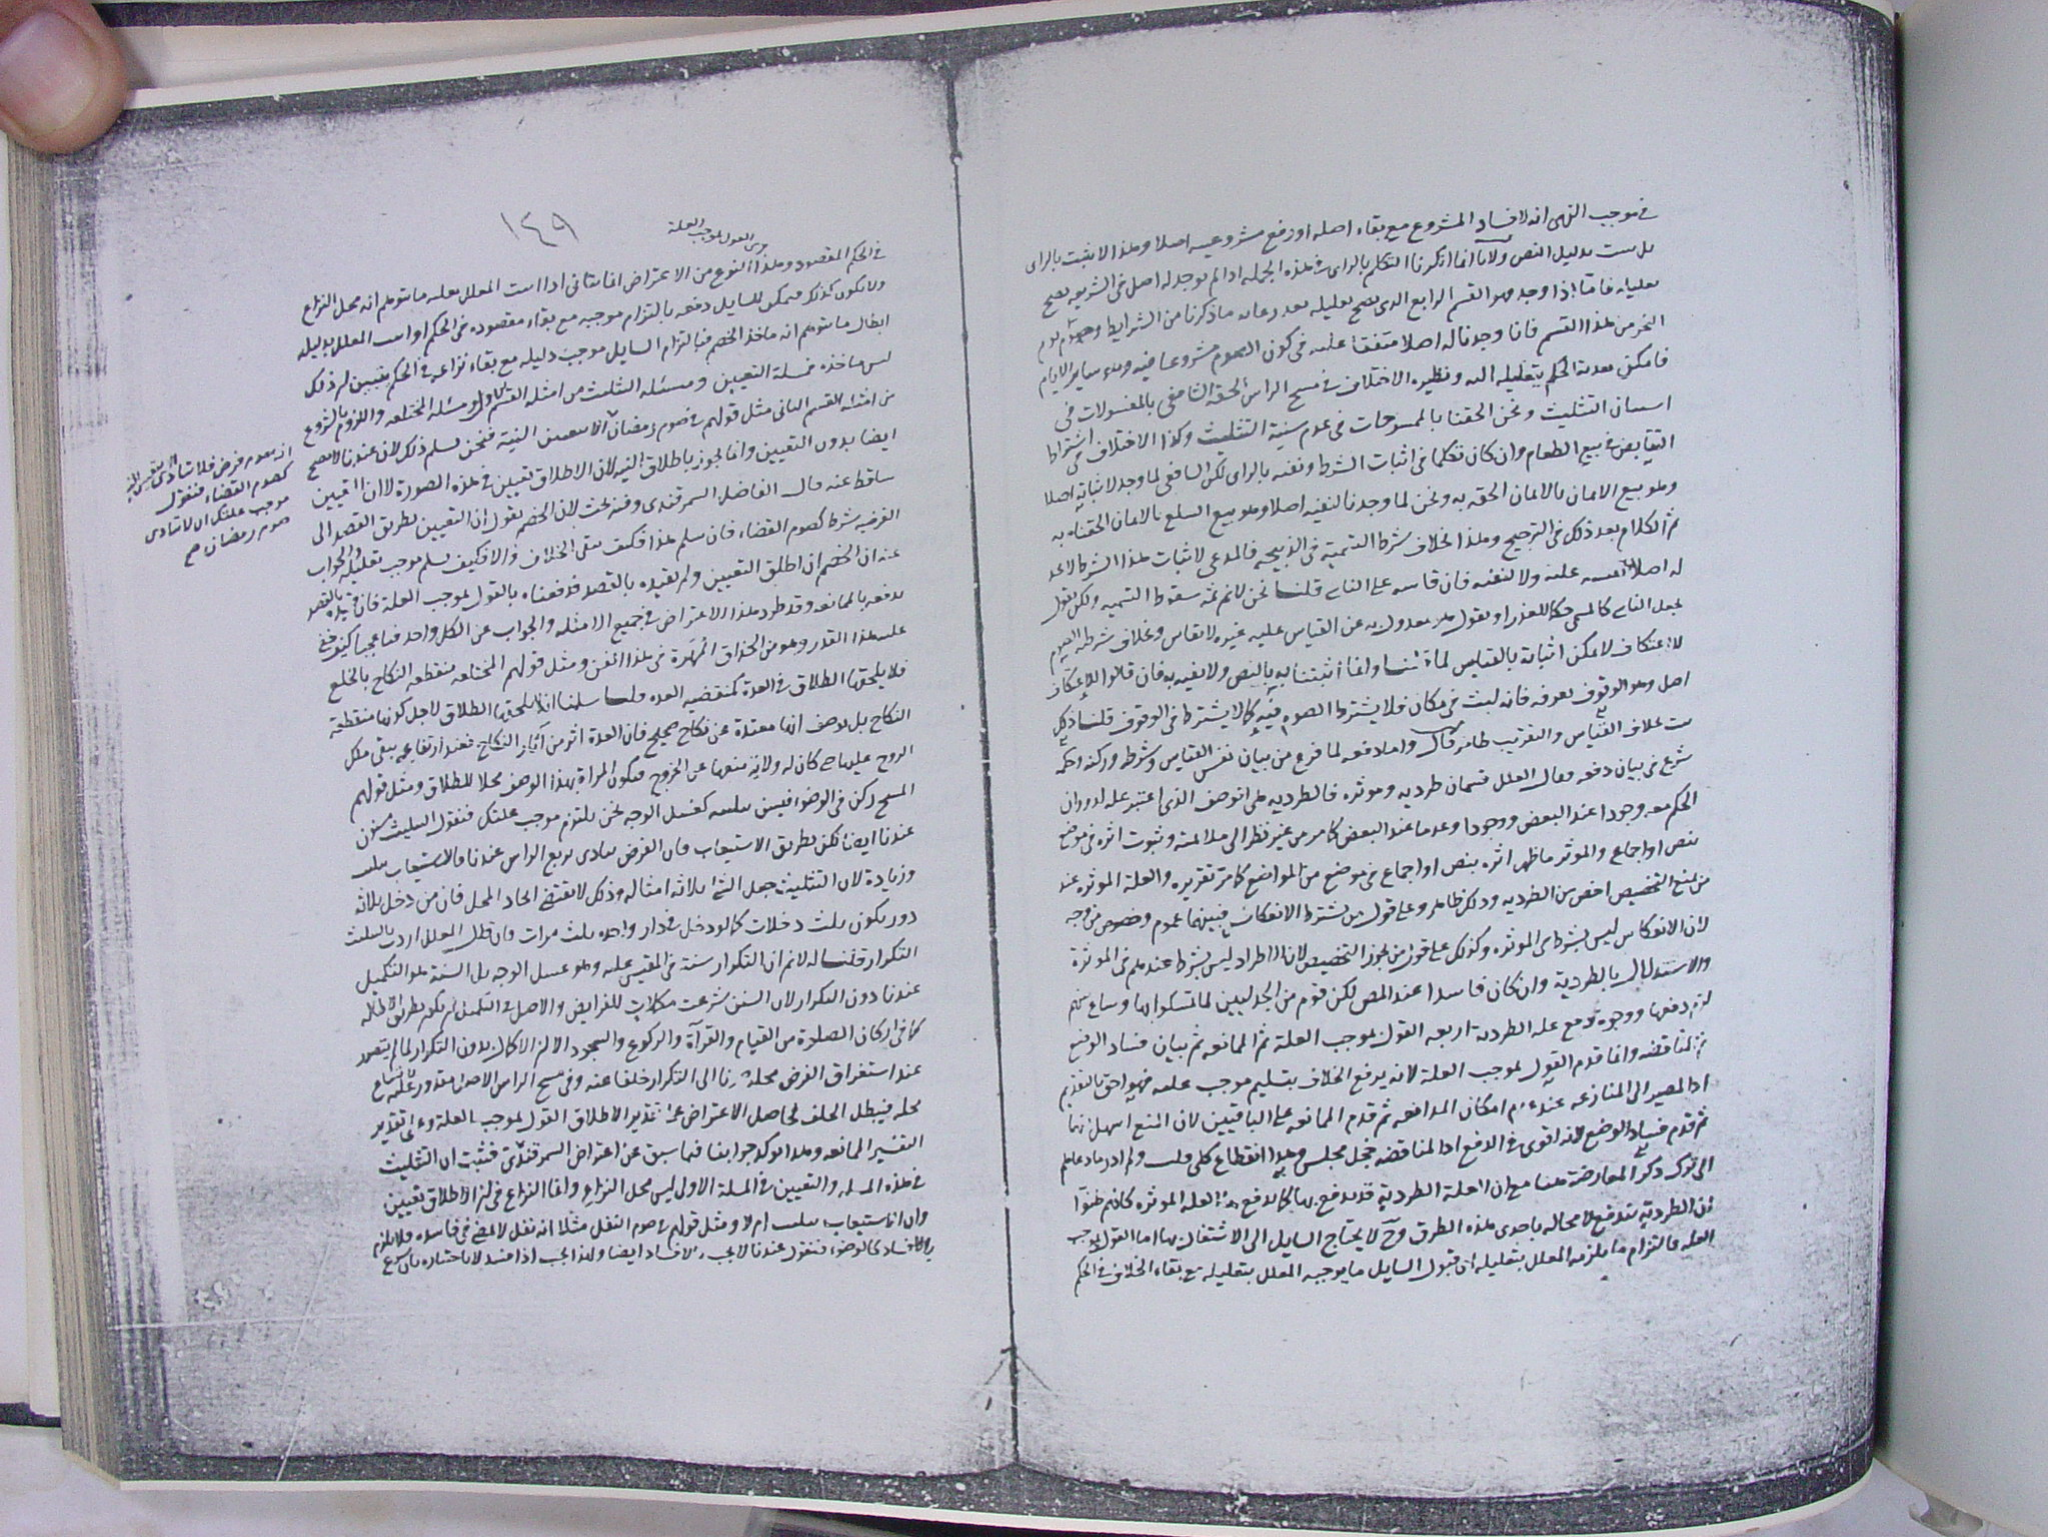 في موجب النهي انه لافساد المشروع مع بقاء اصله او رفع مشروعيته اصلا وهذا لا يثبت بالراي
بل ست بدليل النص ولانا انما انكرنا التكلم بالراي في هذه الجملة اذا لم يوجد له اصل في الشريعة يصح
تعليله فاما اذا وجد فهو القسم الرابع الذي يصح تعليله بعد رعايه ما ذكرنا من الشرايط وصوم يوم
النحر من هذا القسم فانا وجدنا له اصلا متفقا عليه في كون الصوم مشروعا فيه وهو ساير الايام
فامكن تعدية الحكم بتعليله اليه ونظيره الاختلاف في مسح الراس الحقه الشافعي بالمغسولات في
استنان التثليث ونحن الحقنا بالممسوحات في عدم سنية التثليث وكذا الاختلاف في اشتراط
التقابض في بيع الطعام وان كان تكلما في اثبات الشرط ونفيه بالراي لكن الشافعي لما وجد لاثباته اصلا
وهو بيع الاثمان بالاثمان الحقه به ونحن لما وجدنا لنفيه اصلا وهو بيع السلع بالاثمان الحقناه به
ثم الكلام بعد ذلك في الترجيح وهذا بخلاف شرط التسمية في الذبيحه فالمدعي لاثبات هذا الشرط لا يجد
له اصلا عليه ولا لنفيه فان قاسه على الناسي قلنا نحن لا نم ثمة سقوط التسميه ولكن نقول
يجعل الناسي كالمسمي حكما للعذر او نقول هو معدول به عن القياس عليه غيره لا يقاس وبخلاف شرط الصوم
للاعتكاف لا يمكن اثباته بالقياس لما قلنا وانما أثبتنا به بالنص ولا نفيه به فان قالوا للاعتكاف
اصل وهو الوقوف بعرفه فانه لبث في مكان فلا يشترط الصوم فيه كما لا يشترط في الوقوف قلنا ذلك
القياس والتقريب ظاهر قال واما دفعه لما فرغ من بيان نفس القياس وشرطه وركنه وحكمه
شرع في بيان دفعه وقال العلل قسمان طرديه وموثره فالطرديه هي الوصف الذي اعتبر عله لدوران
الحكم معه وجودا عند البعض ووجودا وعدما عند البعض كما مر من غير نظر الى ملائمته وثبوت اثره في موضع
بنص او اجماع والموثر ما ظهر اثره بنص او اجماع في موضع من المواضع كما مر تقريره والعلة الموثره عند
من منع التخصيص اخص من الطرديه وذلك ظاهر وعلى قول من يشترط الانعكاس فبينهما عموم وخصوص من وجه
لان الانعكاس ليس بشرط في الموثره وكذلك على قول من يجوز التخصيص لان الاطراد ليس بشرط عندهم في الموثرة
والاستدلال بالطردية وان كان فاسدا عند المص لكن قوم من الجدليين لما تمسكوا بها وشاع بينهم
لزم دفعها ووجوه دفع عله الطردية اربعه القول بموجب العلة ثم الممانعه ثم بيان فساد الوضع
ثم المناقضه وانما قدم القول بموجب العلة لانه يرفع الخلاف بتسليم موجب علمه فهو احق بالتقديم
اذ المصير الى المنازعه عند عدم امكان المدافعه ثم قدم الممانعه على الباقيين لان المنع اسهل منهما
ثم قدم فساد الوضع لانه اقوى في الدفع اذ المناقضه خجل مجلس وهذا انقطاع كلي قلت ولم ادر ما دعاهم
الى ترك ذكر المعارضة هنا مع ان العلة الطردية قد يدفع بها كما يدفع بها العلة الموثره كانهم ظنوا
ان الطردية تندفع لا محاله باحدى هذه الطرق وح لا يحتاج السايل الى الاشتغال بها اما القول بموجب
العله فالتزام ما يلزمه المعلل بتعليله اي قبول السايل ما يوجبه المعلل بتعليله مع بقاء الخلاف في الحكم
١٤٩
القول بموجب العلة
في الحكم المقصود وهذا النوع من الاعتراض انما يتاتى اذا اثبت المعلل بعلته ما يتوهم انه محل النزاع
ولا يكون كذلك فيمكن للسايل دفعه بالتزام موجبه مع بقاء مقصوده في الحكم او اثبت المعلل بدليله
ابطال ما يتوهم انه ماخذ الخصم فبالتزام السايل موجب دليله مع بقاء نزاعه في الحكم يتبين لم ذلك
ليس ماخذه فمسئلة التعيين ومسئله التثليث من امثله القسم الاول ومسئله المختلعه واللزوم بالشروع
من امثله القسم الثاني مثل قولهم في صوم رمضان النية فنحن نسلم ذلك لان عندنا لا يصح
ايضا بدون التعيين وانما نجوز باطلاق النيه لان الاطلاق تعيين في هذه الصورة لا ان التعيين
ساقط عنه قال الفاضل السمرقندي وفيه بحث لان الخصم يقول ان التعيين بطريق القصد الى
الفرضيه شرط كصوم القضاء فان سلم هذا فكيف بقي الخلاف والا فكيف يسلم موجب تعليله والجواب
عنه ان الخصم ان اطلق التعيين ولم يقيده بالقصد فدفعناه بالقول بموجب العلة فان قيده بالقصد
ندفعه بالممانعه وقد طرد هذا الاعتراض في جميع الامثله والجواب عن الكل واحد فيا عجبا كيف خفي
عليه هذا القدر وهو من الحذاق المهرة في هذا الفن ومثل قولهم المختلعه منقطعه النكاح بالخلع
فلا يلحقها الطلاق في العدة كمنقضيه العده قلنا سلمنا انه لا يلحقها الطلاق لاجل كونها منقطعة
النكاح بل بوصف انها معتدة عن نكاح صحيح فان العدة اثر من آثار النكاح فعند ارتفاعه يبقى ملك
الزوج عليها حتى كان له ولاية منعها عن الخروج فتكون المراة بهذا الوصف محلا للطلاق ومثل قولهم
المسح ركن في الوضوء فيسن تثليثه كغسل الوجه نحن نلتزم موجب علتك فنقول التثليث مسنون
عندنا ايضا لكن بطريق الاستيعاب فان الفرض يتادى بربع الراس عندنا فالاستيعاب تثليث
وزيادة لان التثليث جعل الشئ ثلاثة امثاله وذلك لا يقتضي اتحاد المحل فان من دخل ثلاثه
دور يكون ثلث دخلات كما لو دخل في دار واحده ثلث مرات وان قال المعلل اردت بالتثليث
التكرار قلنا له لا نم ان التكرار سنة في المقيس عليه وهو غسل الوجه بل السنة هو التكميل
عندنا دون التكرار لان السنن شرعت مكملات للفرايض والاصل في التكميل ان يكون بطريق الاطاله
كما في اركان الصلوة من القيام والقرآة والركوع والسجود الا ان الاكمال بدون التكرار لما لم يتصور
عند استغراق الفرض محله صرنا الى التكرار خلفا عنه وفي مسح الراس الاصل مقدور عليه لاتساع
محله فيبطل الخلف فحاصل الاعتراض على تقدير الاطلاق القول بموجب العلة وعلى تقدير
التفسير الممانعه وهذا يوكد جوابنا فيما سبق عن اعتراض السمرقندي فثبت ان التثليث
في هذه المسئلة والتعيين في المسئلة الاولى ليس محل النزاع وانما النزاع في ان الاطلاق تعيين
وان الاستيعاب تثليث ام لا ومثل قولهم في صوم النفل مثلا انه نفل لا يمضى في فاسده فلا يلزم
بالافساد كالوضوء فنقول عندنا لا يجب بالافساد ايضا ولهذا يجب اذا فسد لا باختياره بان شرع
انه صوم فرض فلا يتادى الا بتعيين النية
كصوم القضاء فنقول
موجب علتك ان لا يتادى
صوم رمضان صح